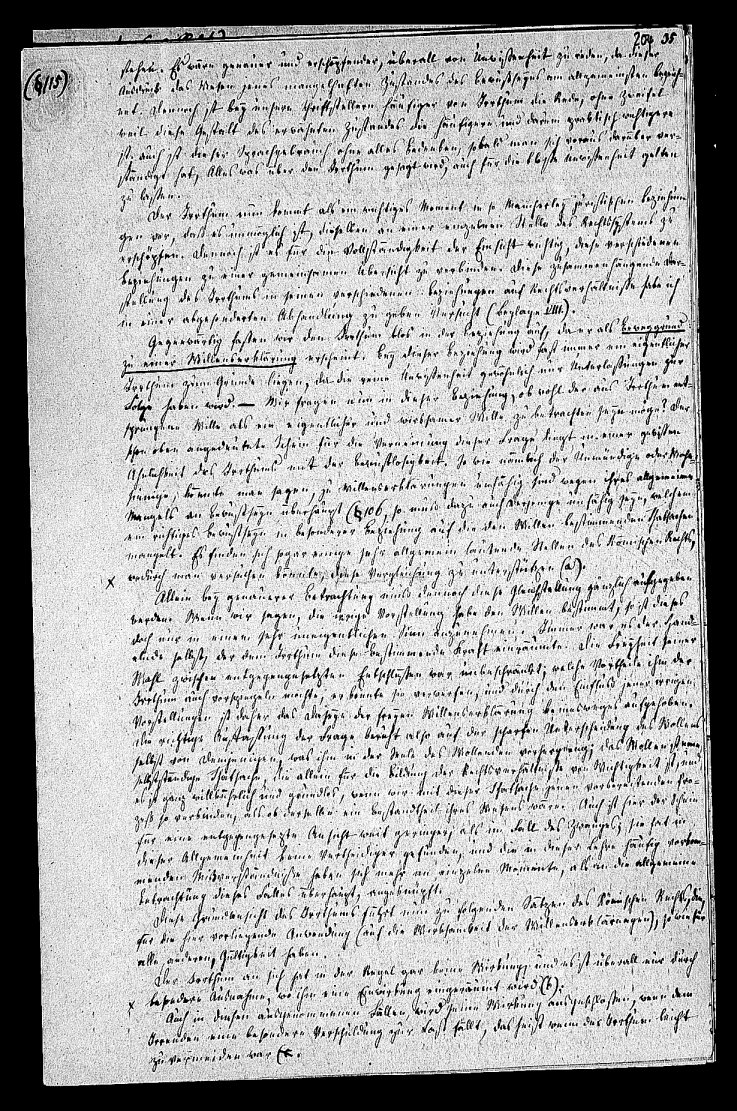 204 35
(§ 115)
stehen. Es wäre genauer und erschöpfender, überall von Unwissenheit zu reden, da dieser
Ausdruck das Wesen jenes mangelhaften Zustandes des Bewußtseyns am allgemeinsten bezeich-
net. Dennoch ist bey unsern Schriftstellern häufiger von Irrthum die Rede, ohne Zweifel
weil diese Gestalt des erwähnten Zustandes die häufigere und darum praktisch wichtigere
ist. Auch ist dieser Sprachgebrauch ohne alles Bedenken, sobald man sich voraus darüber ver-
ständigt hat, Alles was über den Irrthum gesagt wird, auch für die bloße Unwissenheit gelten
zu lassen.
Der Irrthum nun kommt als ein wichtiges Moment in so mancherley juristischen Beziehun-
gen vor, daß es unmöglich ist, dieselben an einer einzelnen Stelle des Rechtssystems zu
erschöpfen. Dennoch ist es für die Vollständigkeit der Einsicht wichtig, diese verschiedenen
Beziehungen zu einer gemeinsamen Übersicht zu verbinden. Diese zusammenhängende Dar-
stellung des Irrthums in seinen verschiedenen Beziehungen auf Rechtsverhältnisse habe ich
in einer abgesonderten Abhandlung zu geben versucht (Beylage VIII).
Gegenwärtig fassen wir den Irrthum blos in der Beziehung auf, da er als Beweggrund
zu einer Willenserklärung erscheint. Bey dieser Beziehung wird fast immer ein eigentlicher
Irrthum zum Grunde liegen, da die reine Unwissenheit gewöhnlich nur Unterlassungen zur
Folge haben wird. — Wir fragen nun in dieser Beziehung, ob wohl der aus Irrthum ent-
sprungene Wille als ein eigentlicher und wirksamer Wille zu betrachten seyn möge? Der
schon oben angedeutete Schein für die Verneinung dieser Frage liegt in einer gewissen
Ähnlichkeit des Irrthums mit der Bewußtlosigkeit. So wie nämlich der Unmündige oder Wahn-
sinnige, könnte man sagen, zu Willenserklärungen unfähig sind wegen ihres allgemeinen
Mangels an Bewußtseyn überhaupt (§ 106, so muß dazu auch derjenige unfähig seyn, welchem
ein richtiges Bewußtseyn in besonderer Beziehung auf die den Willen bestimmenden Thatsachen
mangelt. Es finden sich sogar einige sehr allgemein lautende Stellen des Römischen Rechts,
wodurch man versuchen könnte, diese Vergleichung zu unterstützen (a).
× Allein bey genauerer Betrachtung muß dennoch diese Gleichstellung gänzlich aufgegeben
werden. Wenn wir sagen, die irrige Vorstellung habe den Willen bestimmt, so ist dieses
doch nur in einem sehr uneigentlichen Sinn anzunehmen. Immer war es der Han-
delnde selbst, der dem Irrthum diese bestimmende Kraft einräumte. Die Freyheit seiner
Wahl zwischen entgegengesetzten Entschlüssen war unbeschränkt; welche Vortheile ihm der
Irrthum auch vorspiegeln mochte, er konnte sie verwerfen, und durch den Einfluß jener irrigen
Vorstellungen ist daher das Daseyn der freyen Willenserklärung keineswegs aufgehoben.
Die richtige Auffassung der Frage beruht also auf der scharfen Unterscheidung des Wollens
selbst von Demjenigen, was ihm in der Seele des Wollenden vorherging; das Wollen ist eine
selbstständige Thatsache, die allein für die Bildung der Rechtsverhältnisse von Wichtigkeit ist, und
es ist ganz willkührlich und grundlos, wenn wir mit dieser Thatsache jenen vorbereitenden Pro-
zeß so verbinden, als ob derselbe ein Bestandtheil ihres Wesens wäre. Auch ist hier der Schein
für eine entgegengesetzte Ansicht weit geringer, als im Fall des Zwanges; sie hat in
dieser Allgemeinheit keine Vertheidiger gefunden, und die in dieser Lehre häufig vorkom-
menden Misverständnisse haben sich mehr an einzelne Momente, als an die allgemeine
Betrachtung dieses Falles überhaupt, angeknüpft.
Diese Grundansicht des Irrthums führt nun zu folgenden Sätzen des Römischen Rechts, die,
für die hier vorliegende Anwendung (auf die Wirksamkeit der Willenserklärungen), so wie für
alle anderen, Gültigkeit haben.
Der Irrthum an sich hat in der Regel gar keine Wirkung, und es ist überall nur durch
besondere Ausnahme, wo ihm eine Einwirkung eingeräumt wird (b).
× Auch in diesen ausgenommenen Fällen wird seine Wirkung ausgeschlossen, wenn dem
Irrenden eine besondere Verschuldung zur Last fällt, das heißt wenn der Irrthum leicht
zu vermeiden war (c.